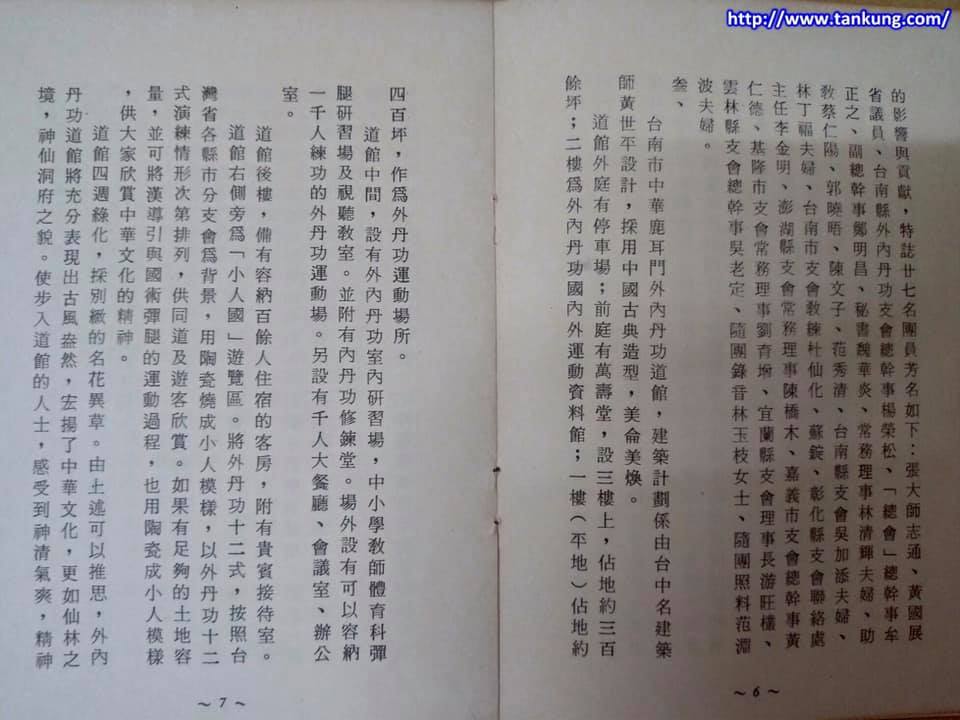 http://www.tankung.com/
的影響與貢獻，特誌廿七名團員芳名如下：張大師志通、黃國展
省議員、台南縣外內丹功支會總幹事楊榮松、「總會」總幹事牟
正之、副總幹事鄭明昌、秘書魏華炎、常務理事林清輝夫婦、助
敎蔡仁陽、郭曉晤、陳文子、范秀清、台南縣支會吳加添夫婦、
林丁福夫婦、台南市支會敎練杜仙化、蘇錠、彰化縣支會聯絡處
主任李金明、澎湖縣支會常務理事陳橋木、嘉義市支會總幹事黃
仁德、基隆市支會常務理事劉育坤、宜蘭縣支會理事長游旺欉、
雲林縣支會總幹事吳老定、隨團錄音林玉枝女士、隨團照料范淵
波夫婦。
叁、
台南市中華鹿耳門外內丹功道館，建築計劃係由台中名建築
師黃世平設計，採用中國古典造型，美侖美煥。
道館外庭有停車場；前庭有萬壽堂，設三樓上，佔地約三百
餘坪；二樓爲外內丹功國內外運動資料館；一樓（平地）佔地約
～6～
四百坪，作爲外丹功運動場所。
道館中間，設有外內丹功室內研習場，中小學敎師體育科彈
腿研習場及視聽敎室。並附有內丹功修鍊堂。場外設有可以容納
一千人練功的外丹功運動場。另設有千人大餐廳、會議室、辦公
室。
道館後樓，備有容納百餘人住宿的客房，附有貴賓接待室。
道館右側旁爲「小人國」遊覽區。將外丹功十二式，按照台
灣省各縣市分支會爲背景，用陶瓷燒成小人模樣，以外丹功十二
式演練情形次第排列，供同道及遊客欣賞。如果有足夠的土地容
量，並可將漢導引與國術彈腿的運動過程，也用陶瓷成小人模樣
，供大家欣賞中華文化的精神。
道館四週綠化，採別緻的名花異草。由上述可以推思，外內
丹功道館將充分表現出古風盎然，宏揚了中華文化，更如仙林之
境，神仙洞府之貌。使步入道館的人士，感受到神清氣爽，精神
～7～